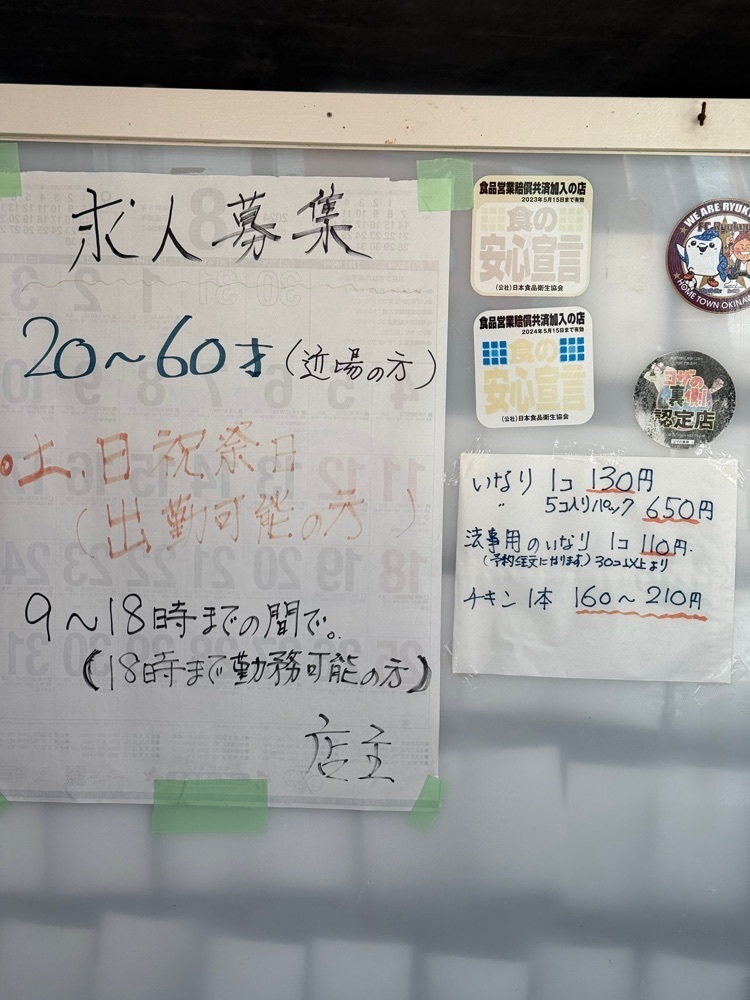 求人募集
20～60才(近場の方)
土、日祝祭日
(出勤可能の方)
9～18時までの間で。
(18時まで勤務可能の方)
店主
食品営業賠償共済加入の店
2023年5月15日まで有効
食の
安心宣言
(公社)日本食品衛生協会
食品営業賠償共済加入の店
2024年5月15日まで有効
食の
安心宣言
(公社)日本食品衛生協会
WE ARE RYUKYU
FC Ryukyu
HOME TOWN OKINAWA
コザの
裏側
認定店
いなり 1コ 130円
〃 5コ入りパック 650円
法事用のいなり 1コ 110円.
(予約注文になります) 30コ以上より
チキン 1本 160～210円